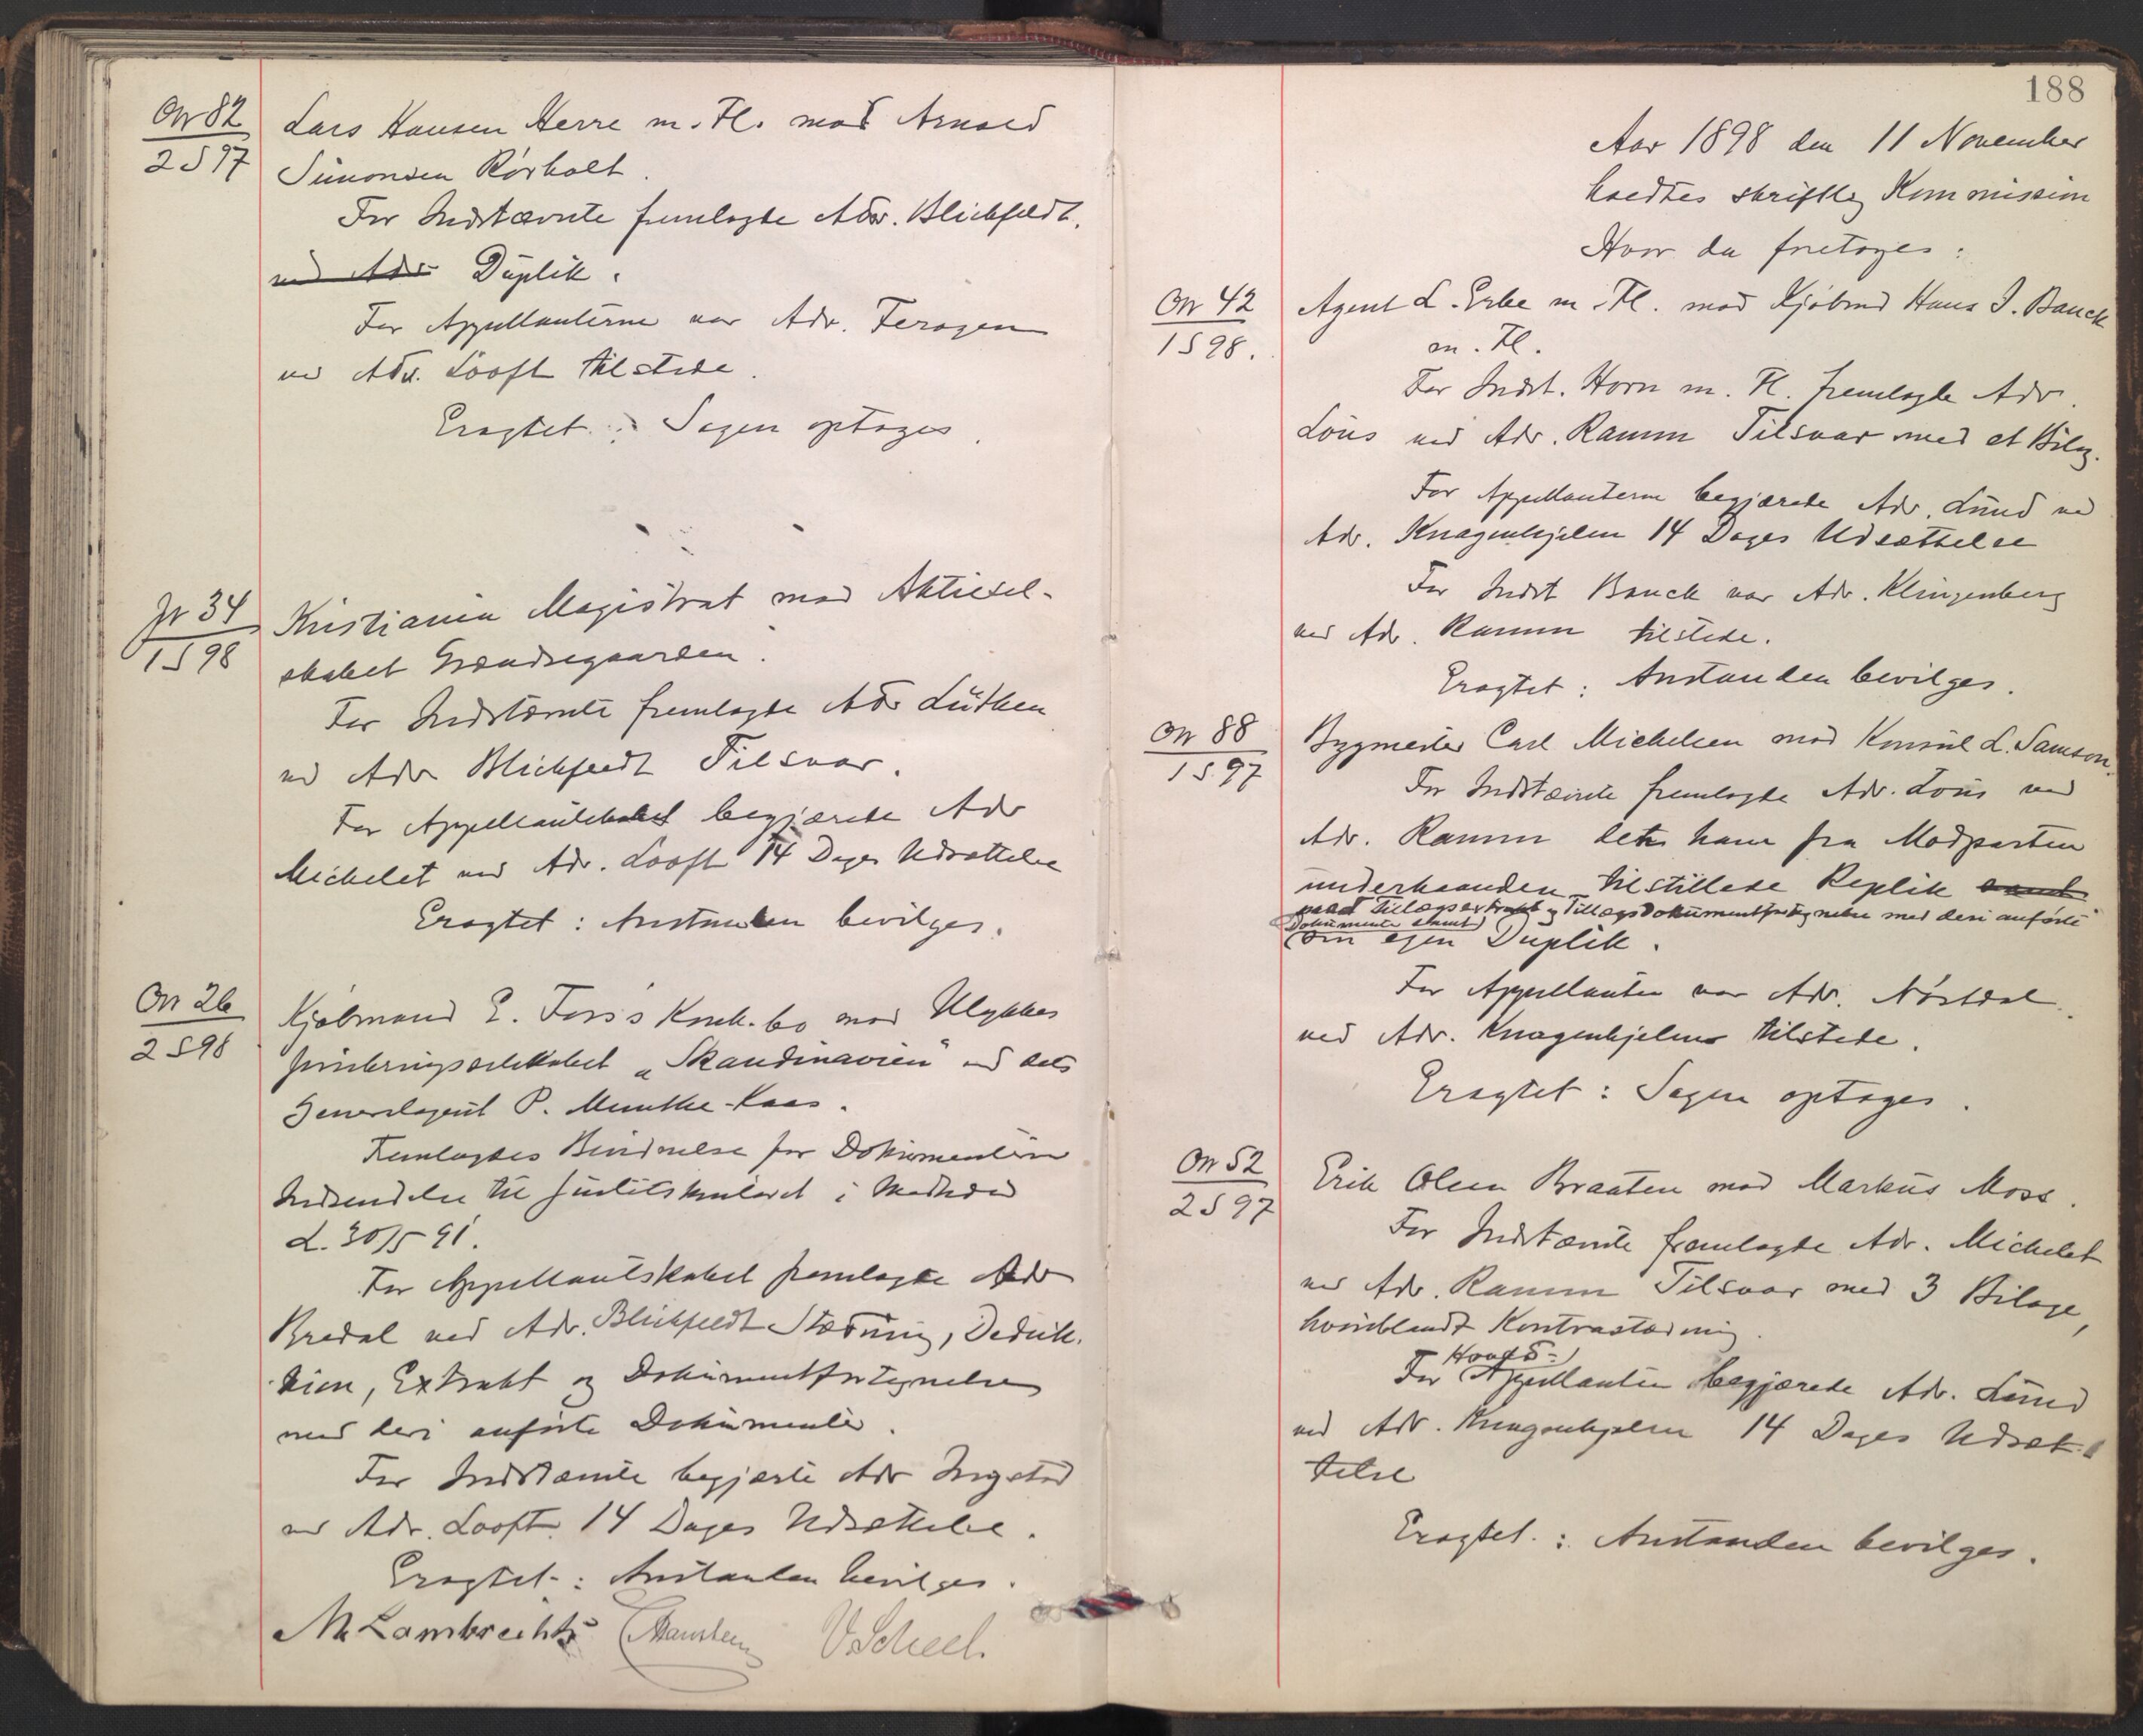 On 82
2 S 97
Lars Hansen Herre m. Fl. mod Arnold
Simonsen Rörholt.
For Indstævnte fremlagte Adv. Blichfeldt.
ved Adv Duplik.
For Appellanterne var Adv. Feragen
ved Adv. Looft tilstede.
Eragtet: Sagen optages.
Jr 34
1 S 98
Kristiania Magistrat mod Aktiesel-
skabet Grændsegaarden.
For Indstævnte fremlagde Adv Lütken
ved Adv Blichfeldt Tilsvar.
For Appellantskabet begjærede Adv
Michelet ved Adv. Looft 14 Dages Udsættelse
Eragtet: Anstanden bevilges.
On 26
2 S 98
Kjøbmand E. Foss's Konk.bo mod Ulykkes
forsikringsselskabet „Skandinavien" ved dets
Generalagent P. Munthe-Kaas.
Fremlagdes Bevidnelse for Dokumenternes
Indsendelse til Justitskontoret i Medhold
L. 30/5 91.
For Appellantskabet fremlagde Adv
Bredal ved Adv. Blichfeldt Stævning, Deduk-
tion, Extrakt og Dokumentfortegnelse
med deri anförte Dokumenter.
For Indstævnte begjærte Adv Ingstad
ved Adv. Looft 14 Dages Udsættelse.
Eragtet: Anstanden bevilges.
M Lambrechts V. Scheel.
188
Aar 1898 den 11 November
holdtes skriftlig Kommission
Hvor da foretoges:
On 42
1 S 98.
Agent L. Erbe m. Fl. mod Kjöbmd Hans J. Banck
m. Fl.
For Indst. Horn m. Fl. fremlagde Adv.
Löus ved Adv. Ramm Tilsvar med et Bilag.
For Appellanterne begjærede Adv. Lund ved
Adv. Knagenhjelm 14 Dages Udsættelse
For Indst Banck var Adv. Klingenberg
ved Adv. Ramm tilstede.
Eragtet: Anstanden bevilges.
On 88
1 S. 97
Bygmester Carl Michelsen mod Konsul L. Samson.
For Indstævnte fremlagde Adv. Löus ved
Adv. Ramm den ham fra Modparten
underhaanden tilstillede Replik samt
med Tillægsextrakt og Tillægsdokumentfortegnelse med deri anförte
Dokumenter samt
sin egen Duplik.
For Appellanten var Adv. Nörstdal
ved Adv. Knagenhjelm tilstede.
Eragtet: Sagen optages.
On 52
2 S 97
Erik Olsen Braaten mod Markus Moss.
For Indstævnte fremlagde Adv. Michelet
ved Adv. Ramm Tilsvar med 3 Bilage,
hvoriblandt Kontrastævning.
Hoved-
For Appellanten begjærede Adv. Lund
ved Adv. Knagenhjelm 14 Dages Udsæt-
telse
Eragtet: Anstanden bevilges.